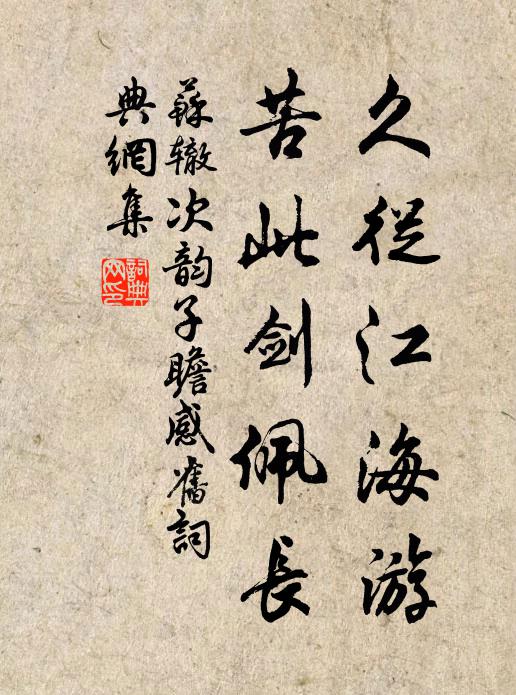 久從江海游
苦此劍佩長
蘇辙次韵子瞻感舊詞
典網集
詞典
网印